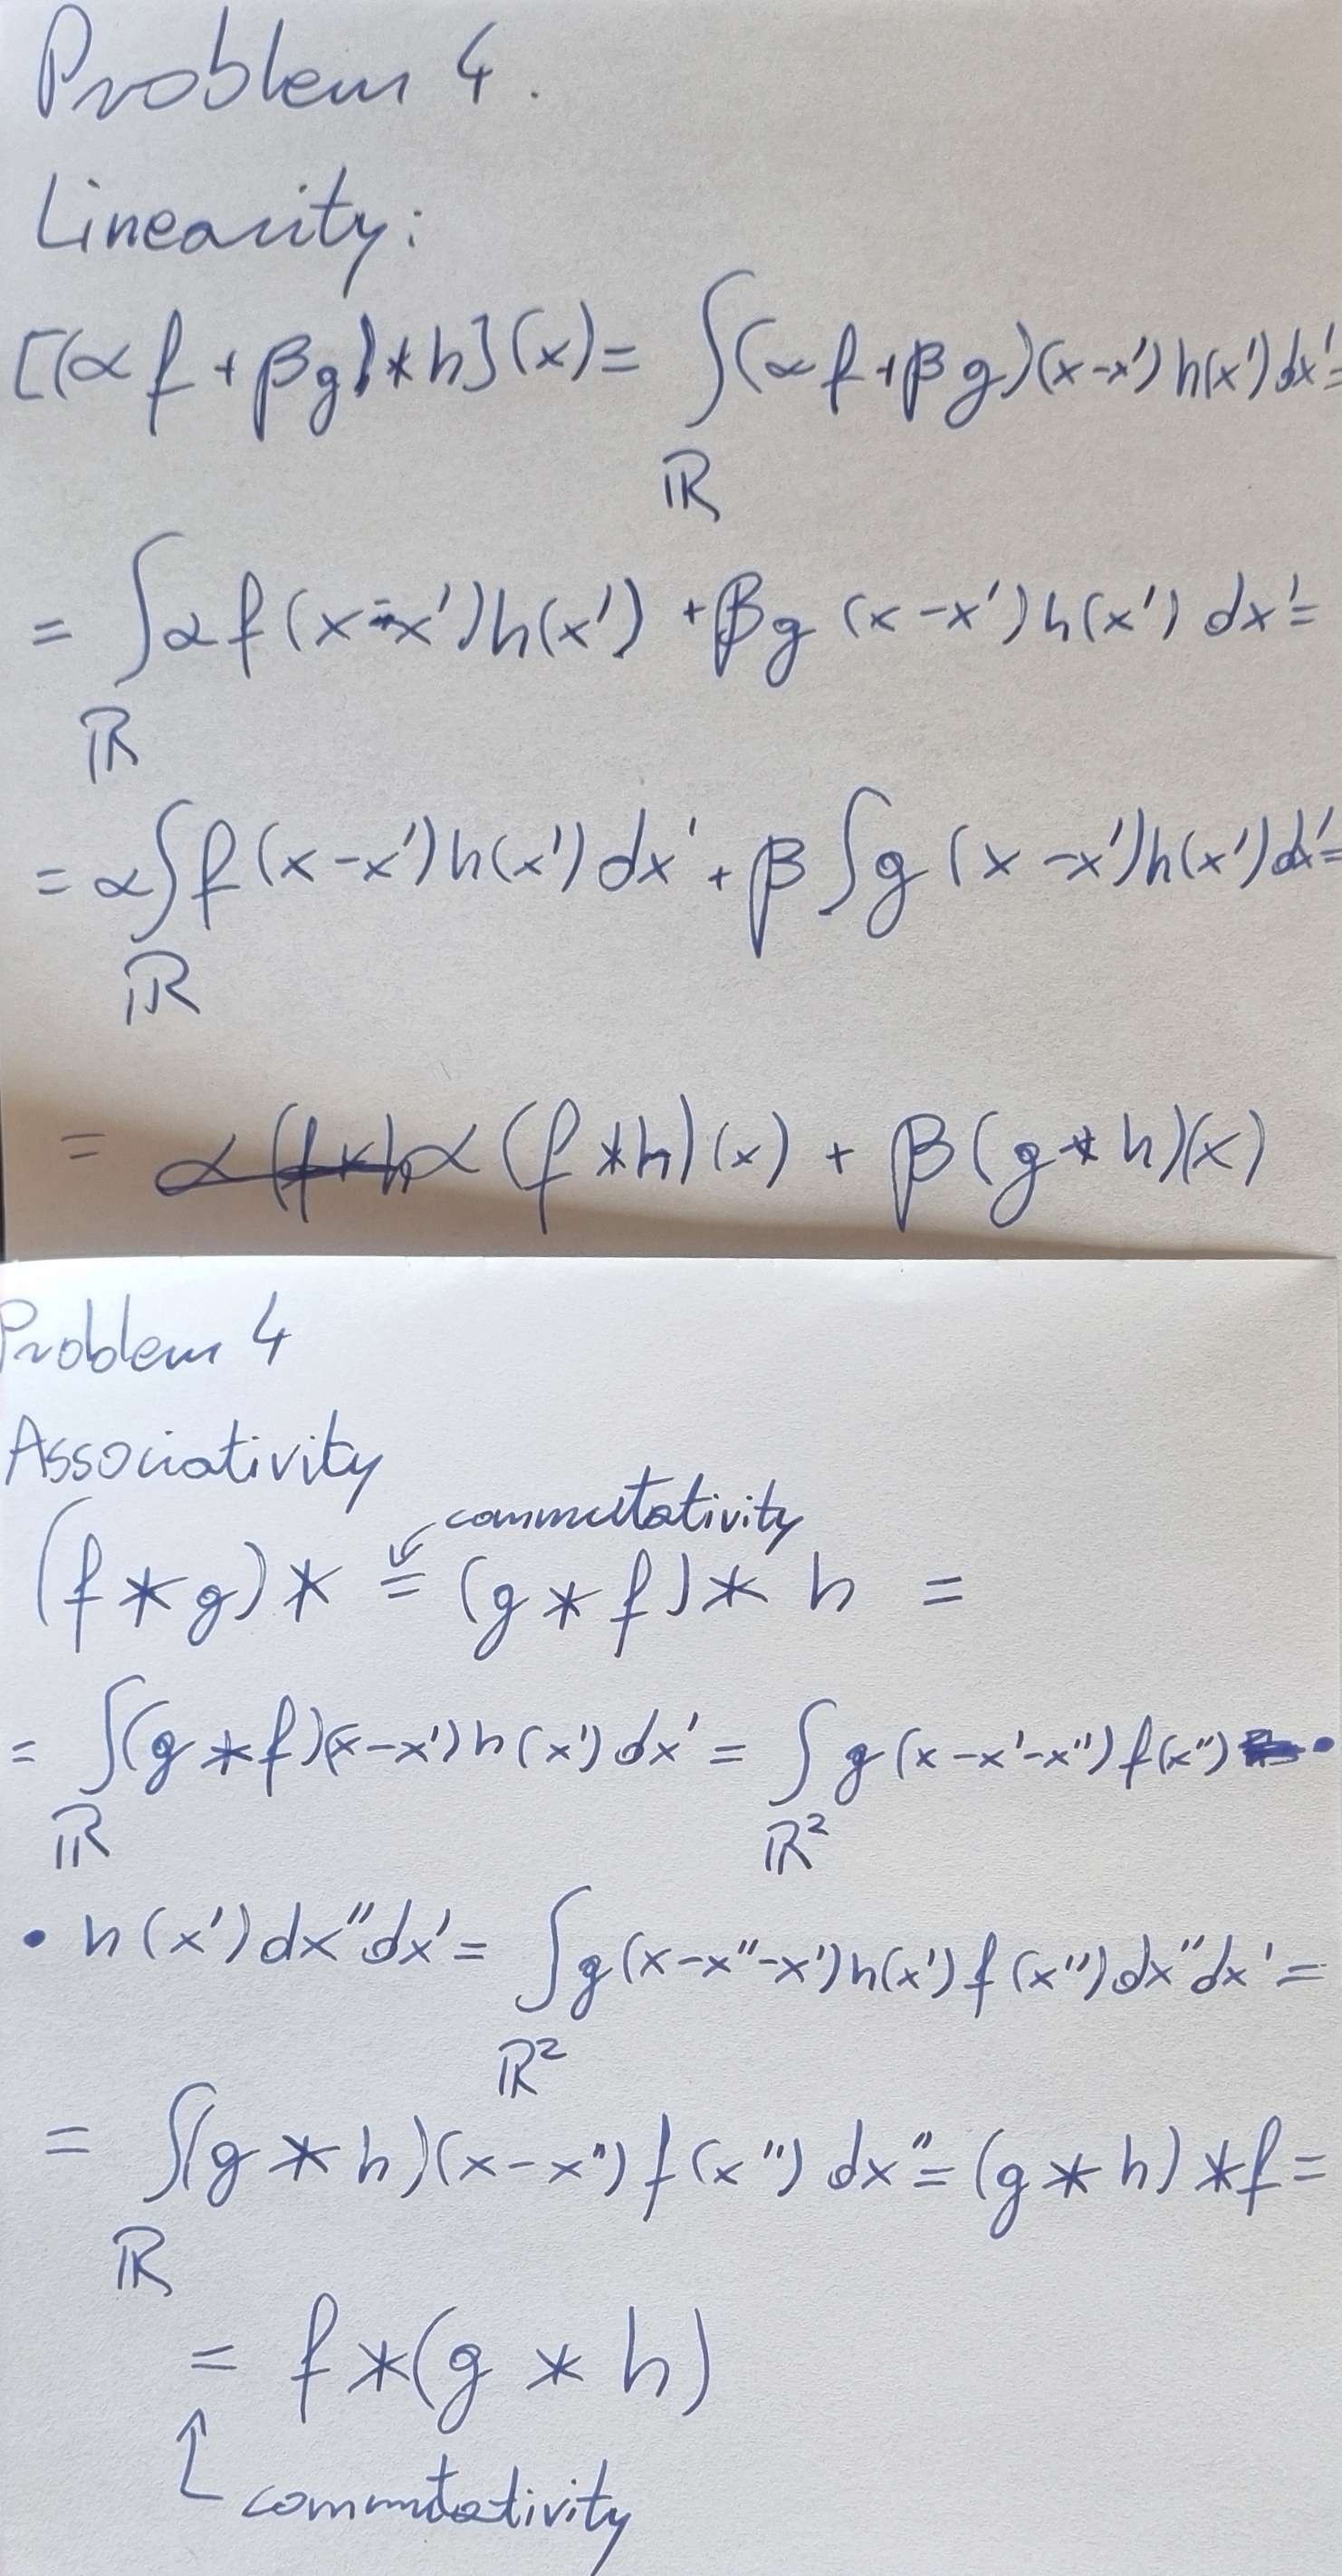 Problem 4.
Linearity:
[(αf + βg) * h](x) = ∫(αf + βg)(x-x')h(x')dx' =
ℝ
= ∫αf(x-x')h(x') + βg(x-x')h(x') dx' =
ℝ
= α∫f(x-x')h(x')dx' + β∫g(x-x')h(x')dx' =
ℝ
= α(f*h)(x) + β(g*h)(x)
Problem 4
Associativity
commutativity
(f * g) * = (g * f) * h =
= ∫(g * f)(x-x')h(x')dx' = ∫g(x-x'-x'')f(x'') ·
ℝ ℝ²
· h(x')dx''dx' = ∫g(x-x''-x')h(x')f(x'')dx''dx' =
ℝ²
= ∫(g * h)(x-x'')f(x'')dx'' = (g * h) * f =
ℝ
= f * (g * h)
commutativity